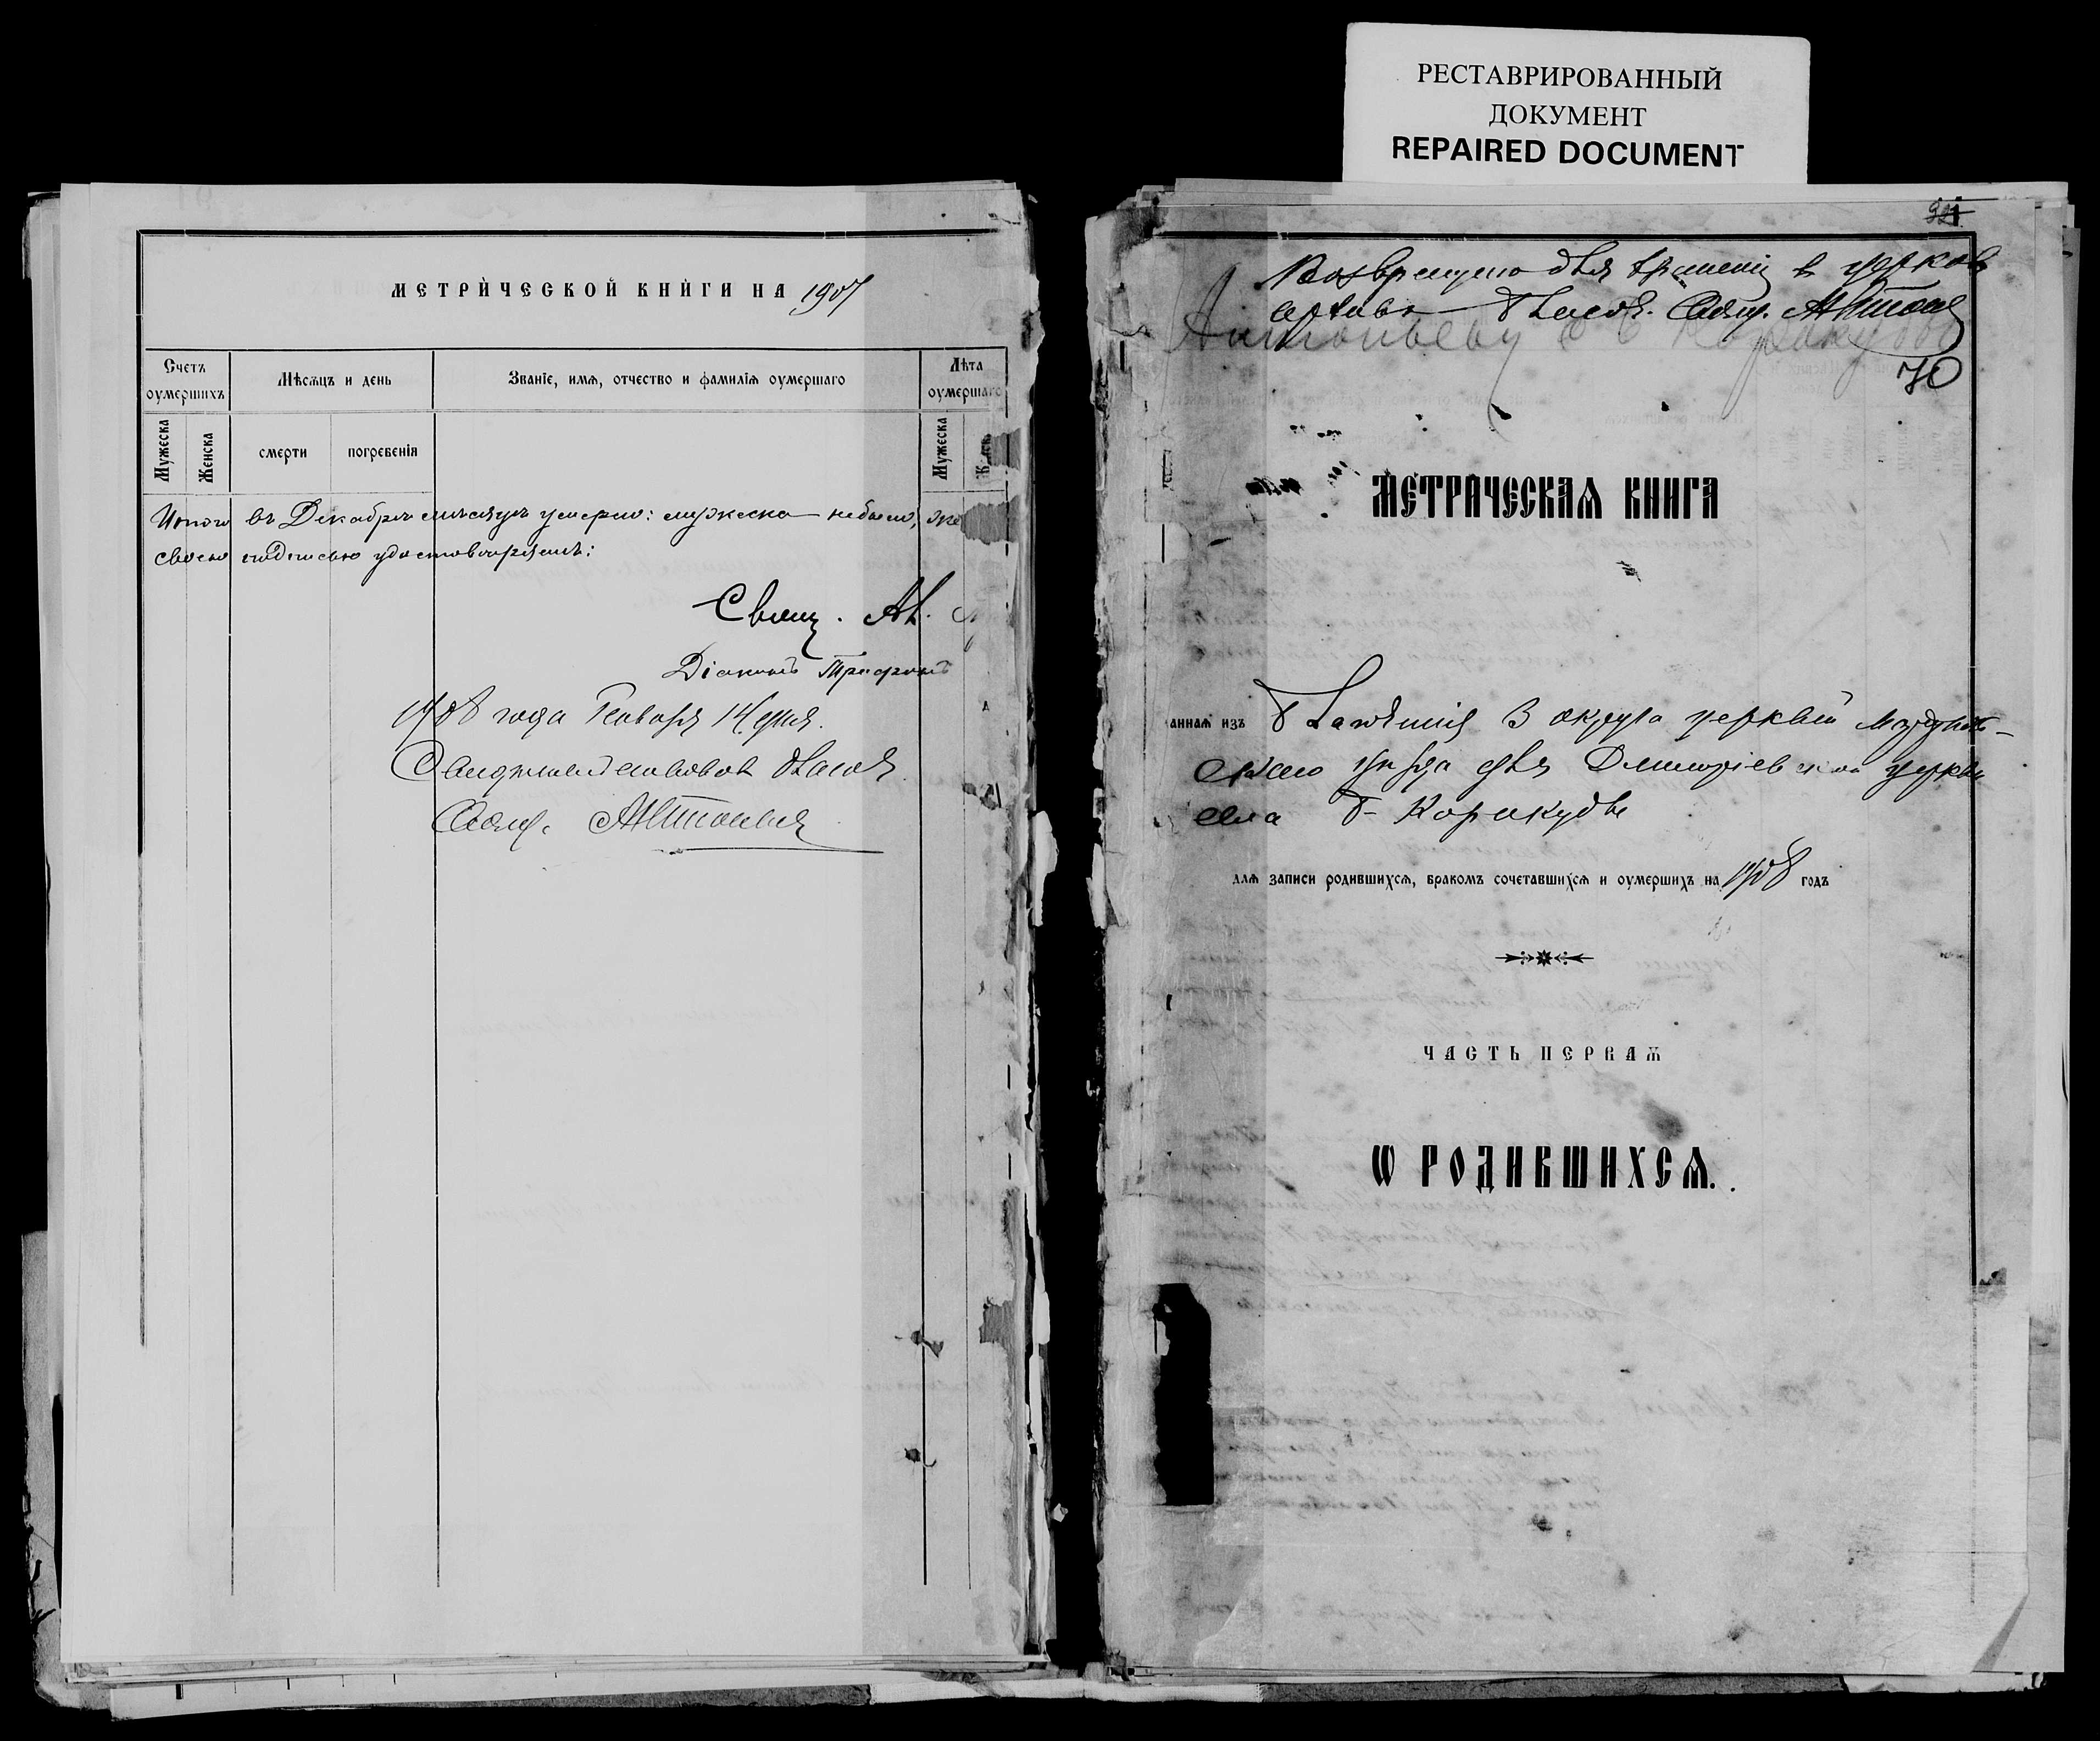 РЕСТАВРИРОВАННЫЙ
ДОКУМЕНТ
REPAIRED DOCUMENT
МЕТРИ́ЧЕСКОЙ КНИ́ГИ НА 1907
Счетъ оумершихъ
Мѣсѧцъ и день
Званїе, имѧ, отчество и фамилїѧ оумершаго
Лѣта оумершаго
Мужеска
Женска
смерти
погребенїѧ
Мужеска
Итого въ Декабрѣ мѣсяцѣ умерло: мужска не было, же
своею подписью удостовѣряемъ:
Свящ. Ал.
Діаконъ Трифонъ
1908 года Января 14 дня.
Свидѣтельствовалъ Благоч.
Свящ. А
Возвращено для хранения в церков
архивъ Благоч. Свящ. А
70
МЕТРИ́ЧЕСКАѦ КНИГА
аннаѧ изъ Благочинія 3 округа церквей
скаго уѣзда для Димитріевской церкви
села Б- Коракудве
длѧ записи родившихсѧ, бракомъ сочетавшихсѧ и оумершихъ на 1908 годъ
ЧАСТЬ ПЕРВАѦ
Ѡ РОДИВШИХСѦ.